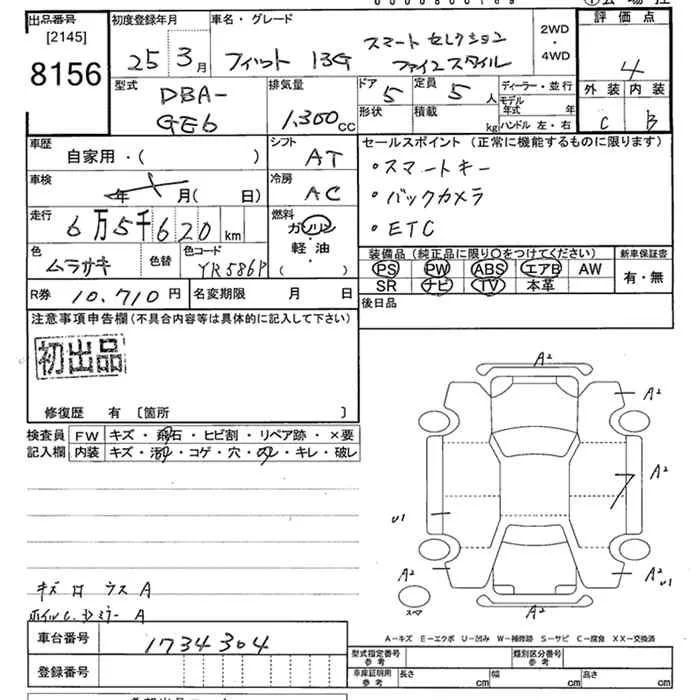 出品番号
[2145]
8156
初度登録年月
25 3月
車名・グレード
フィット 13G スマートセレクション
ファインスタイル
2WD
・
4WD
評価点
4
外装 内装
C B
型式
DBA-
GE6
排気量
1,300cc
ドア 5
形状
定員 5人
積載 kg
ディーラー・並行
モデル年式 年
ハンドル 左・右
車歴
自家用・( )
シフト
AT
車検
年 月( 日)
冷房
AC
走行
6万5千620km
燃料
ガソリン
軽油
・
( )
色
ムラサキ
色替
色コード
YR586P
R券 10,710円
名変期限 月 日
セールスポイント(正常に機能するものに限ります)
・スマートキー
・バックカメラ
・ETC
装備品(純正品に限り○をつけてください)
PS PW ABS エアB AW
SR ナビ TV 本革
新車保証書
有・無
後日品
注意事項申告欄(不具合内容等は具体的に記入して下さい)
初出品
修復歴 有 [箇所 ]
検査員
記入欄
FW キズ・飛石・ヒビ割・リペア跡・×要
内装 キズ・汚れ・コゲ・穴・スレ・キレ・破レ
A²
A²
A²
A²
U1
A²
A² U1
A²
スペア
キズ
A
A
A−キズ E−エクボ U−凹み W−補修跡 S−サビ C−腐食 XX−交換済
車台番号
1734304
登録番号
型式指定番号
参考
類別区分番号
参考
車庫証明用
参考
長さ cm
幅 cm
高さ cm